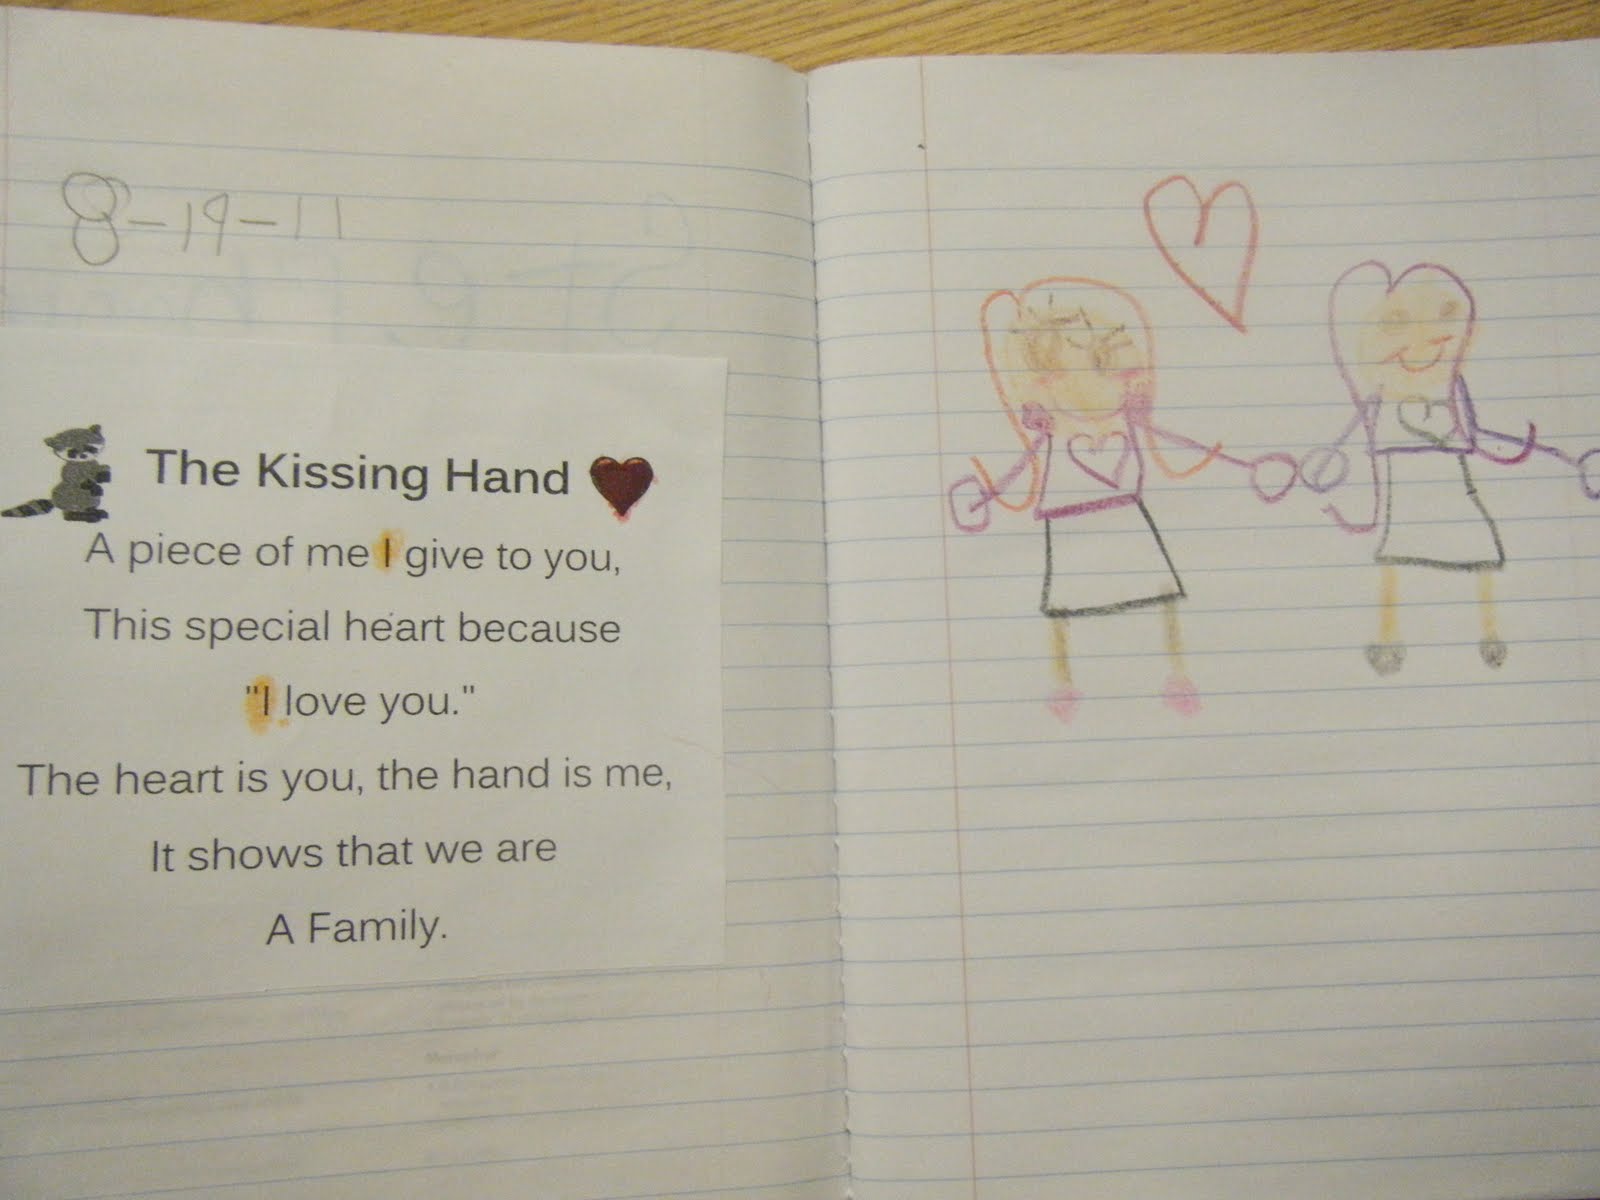 8-19-11
The Kissing Hand
A piece of me I give to you,
This special heart because
"I love you."
The heart is you, the hand is me,
It shows that we are
A Family.